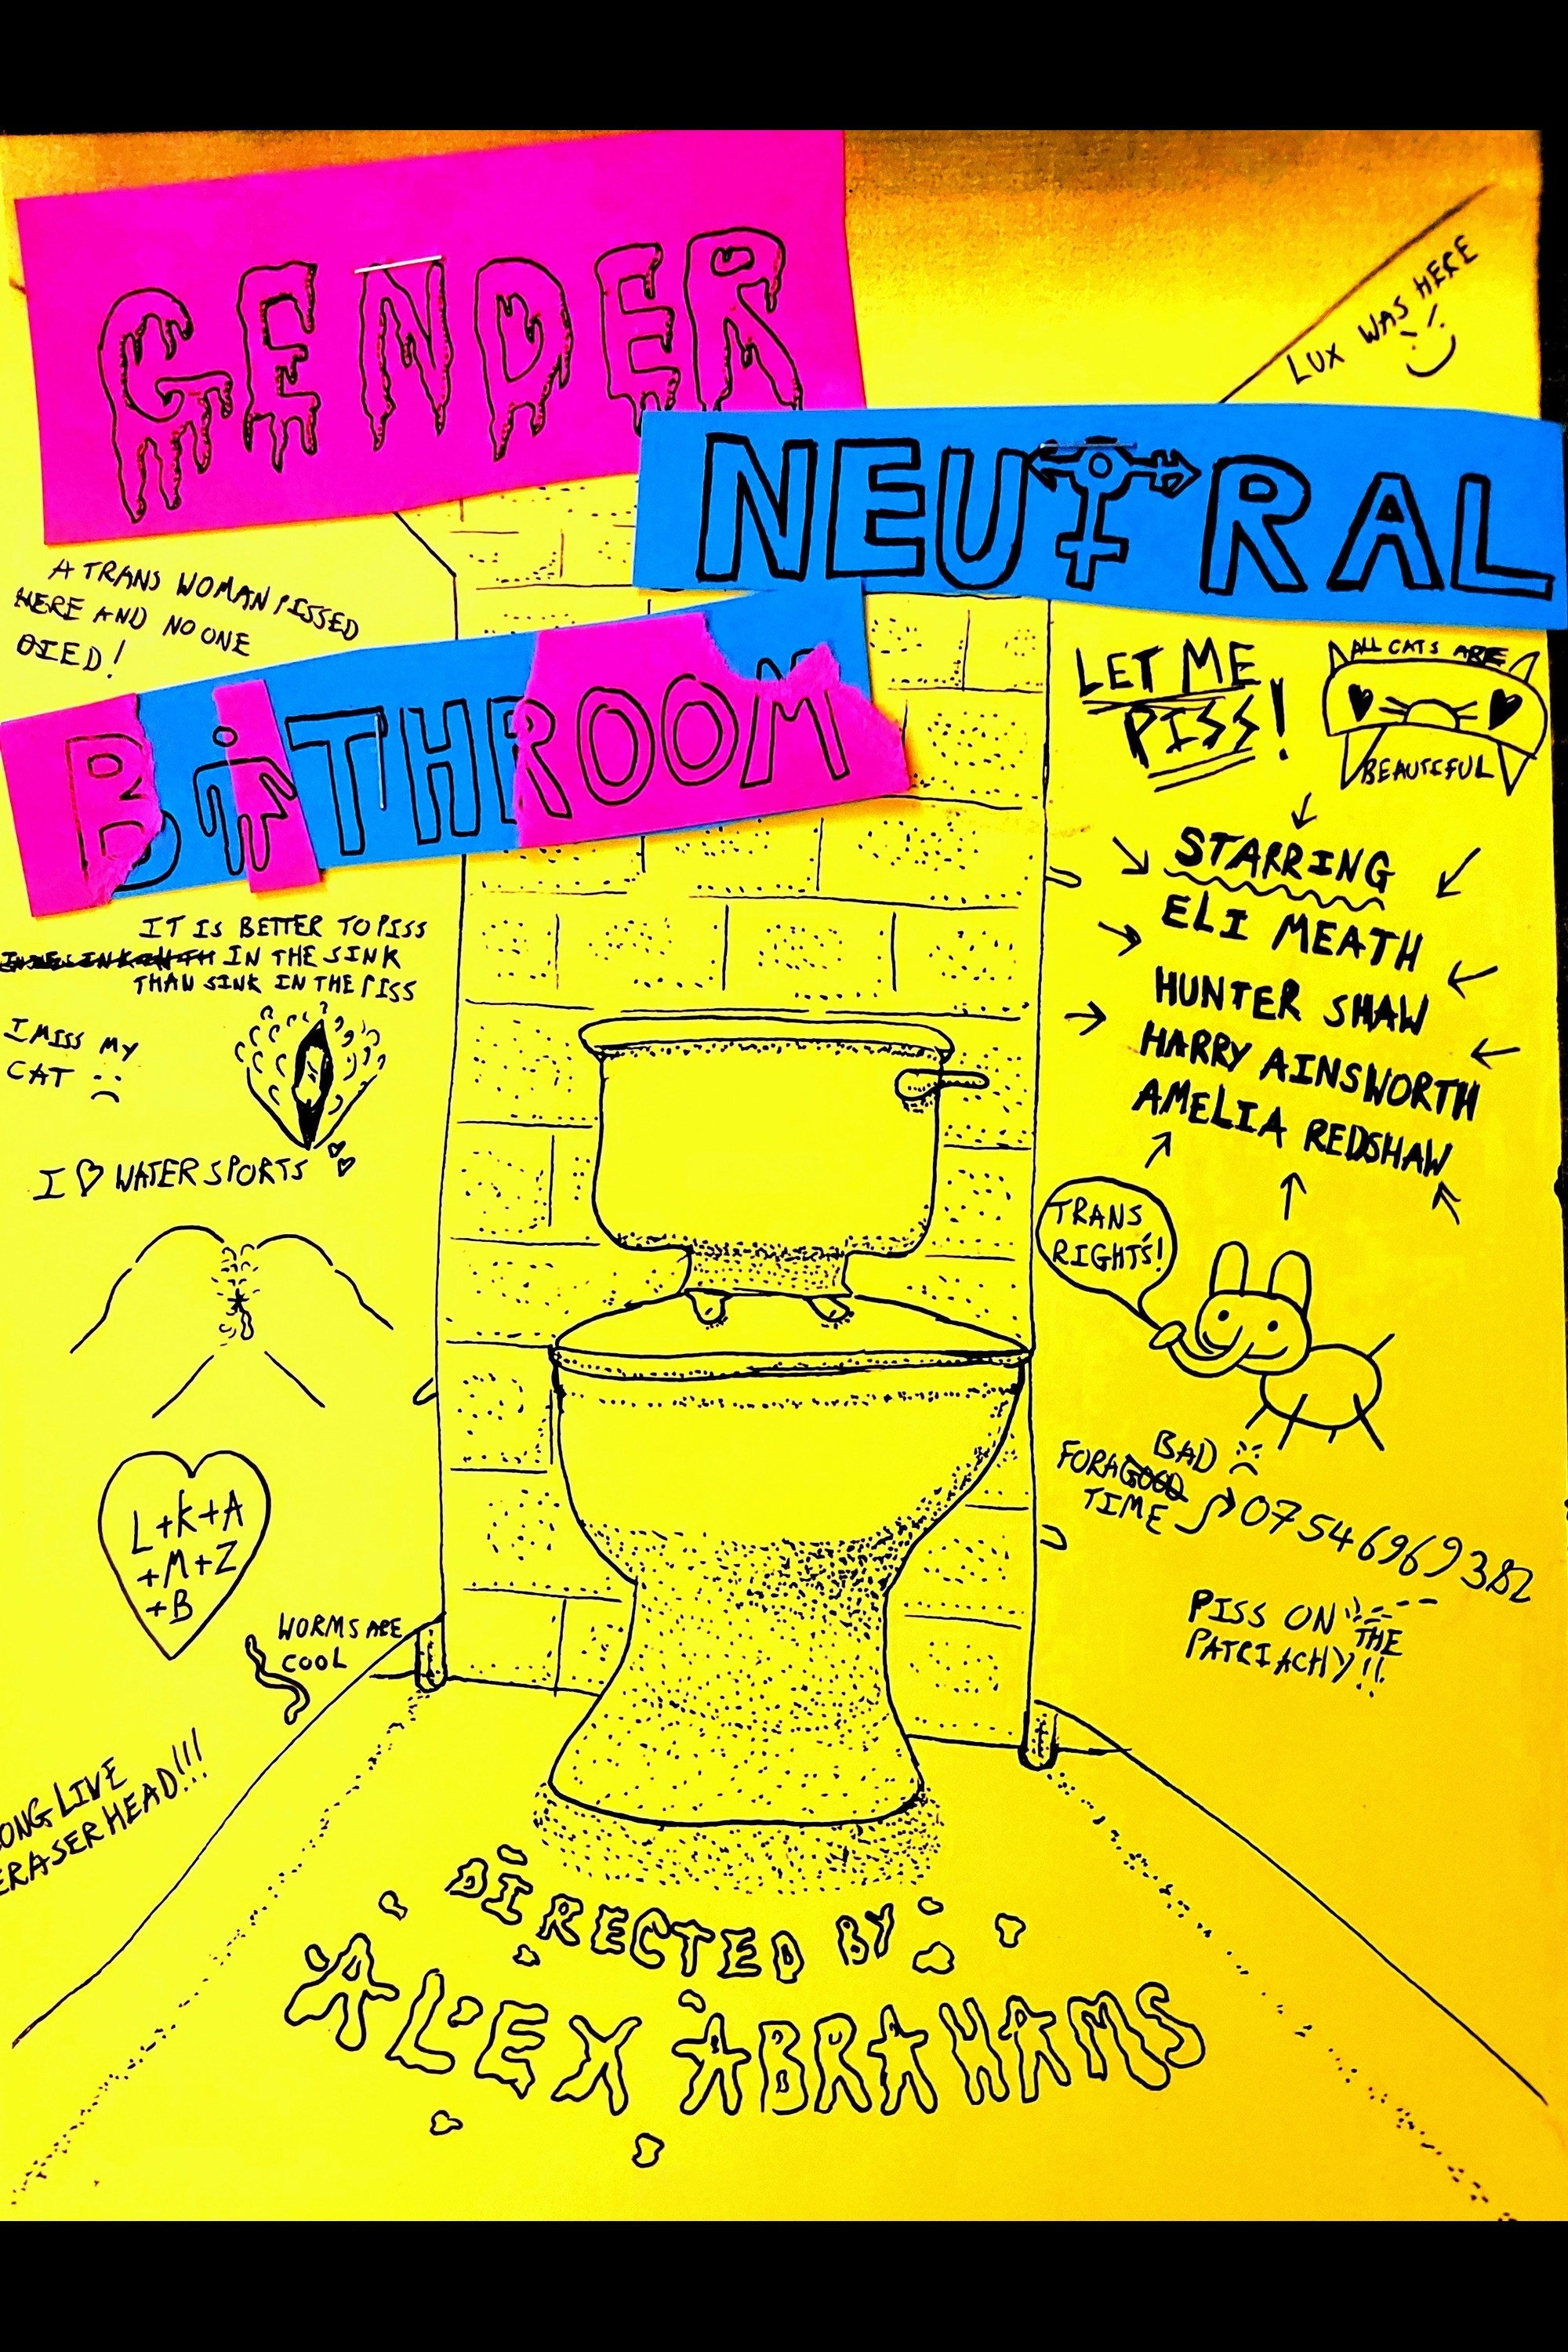 GENDER
NEUTRAL
BATHROOM
LUX WAS HERE
A TRANS WOMAN PISSED
HERE AND NO ONE
DIED!
LET ME
PISS!
ALL CATS ARE
BEAUTIFUL
STARRING
ELI MEATH
HUNTER SHAW
HARRY AINSWORTH
AMELIA REDSHAW
IT IS BETTER TO PISS
IN THE SINK
THAN SINK IN THE PISS
I MISS MY
CAT :(
I ♡ WATERSPORTS
TRANS
RIGHTS!
L+K+A
+M+Z
+B
BAD
FOR A GOOD
TIME
07546969382
WORMS ARE
COOL
PISS ON THE
PATRIACHY!!
LONG LIVE
ERASERHEAD!!!
DIRECTED BY:
ALEX ABRAHAMS